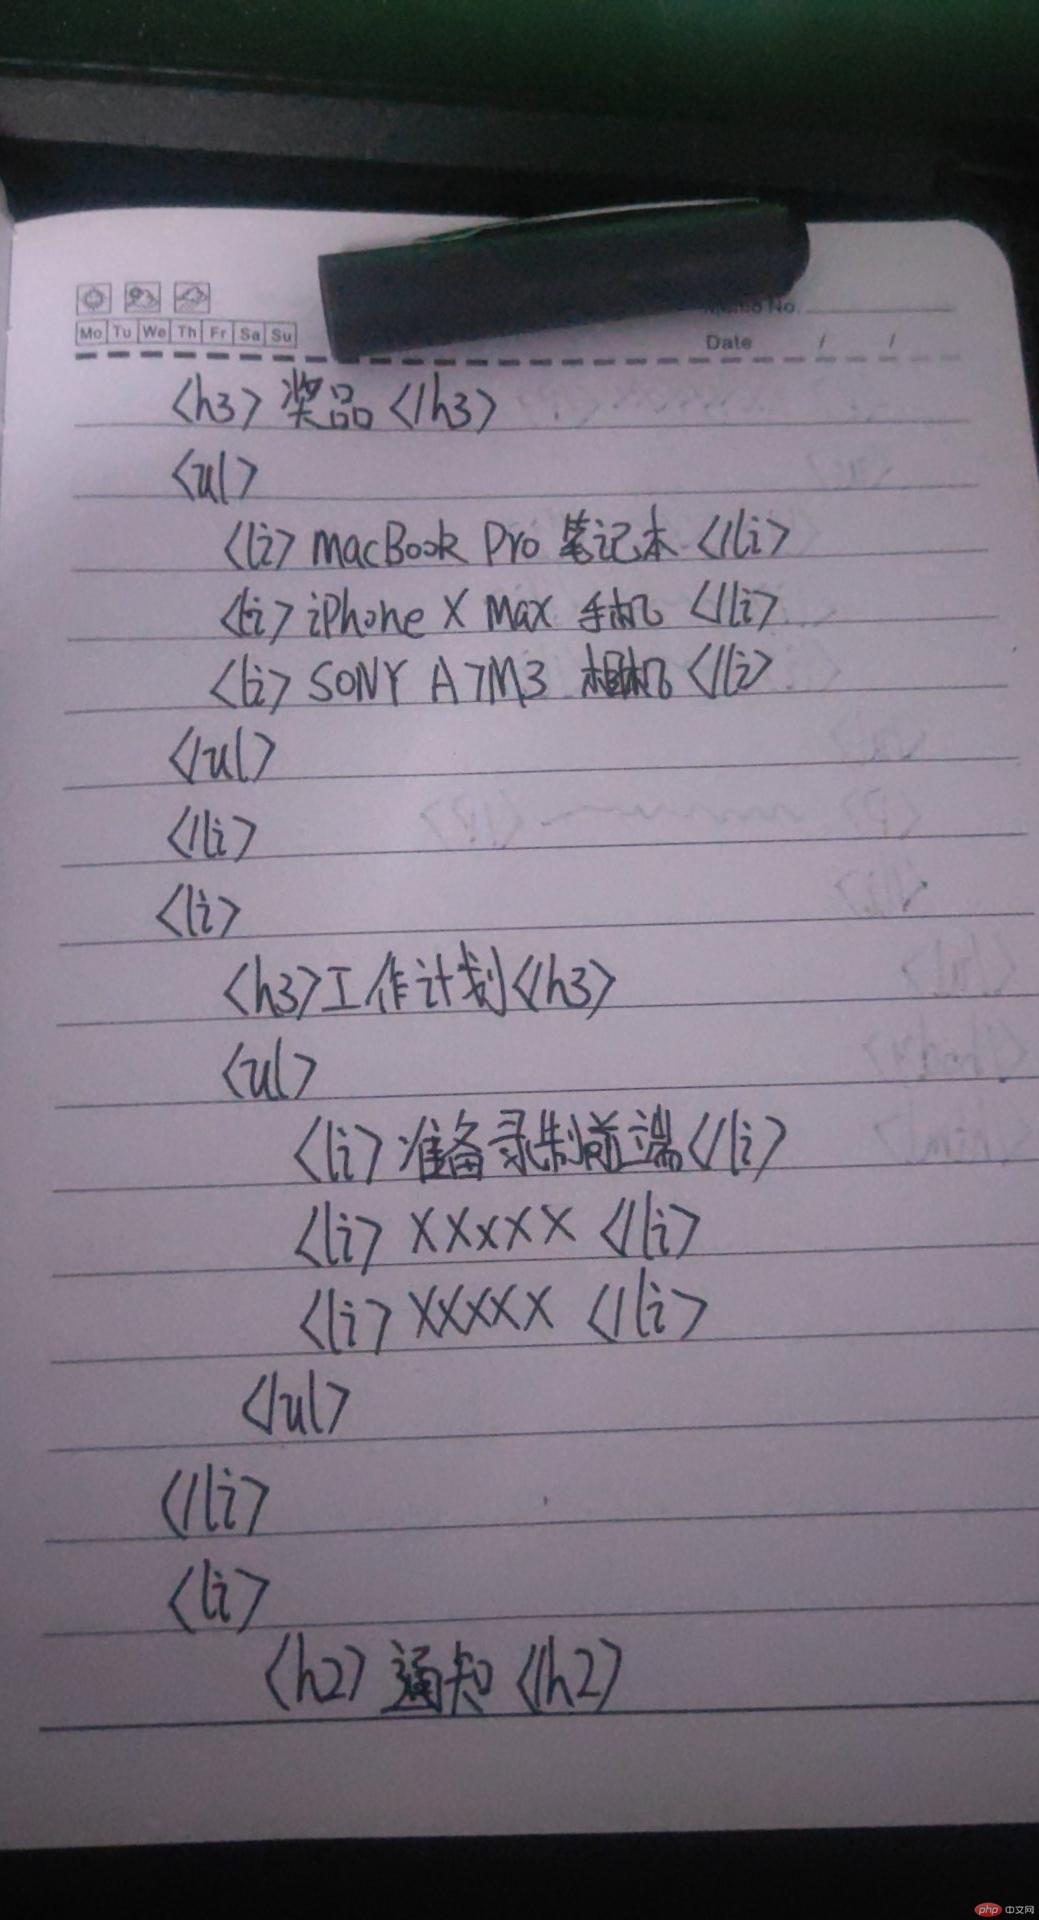 Mo Tu We Th Fr Sa Su
Memo No.
Date / /
<h3> 奖品 </h3>
<ul>
<li> macBook Pro 笔记本 </li>
<li> iPhone X Max 手机 </li>
<li> SONY A7M3 相机 </li>
</ul>
</li>
<li>
<h3>工作计划</h3>
<ul>
<li> 准备录制前端</li>
<li> XXXXX </li>
<li> XXXXX </li>
</ul>
</li>
<li>
<h2> 通知 </h2>
php 中文网